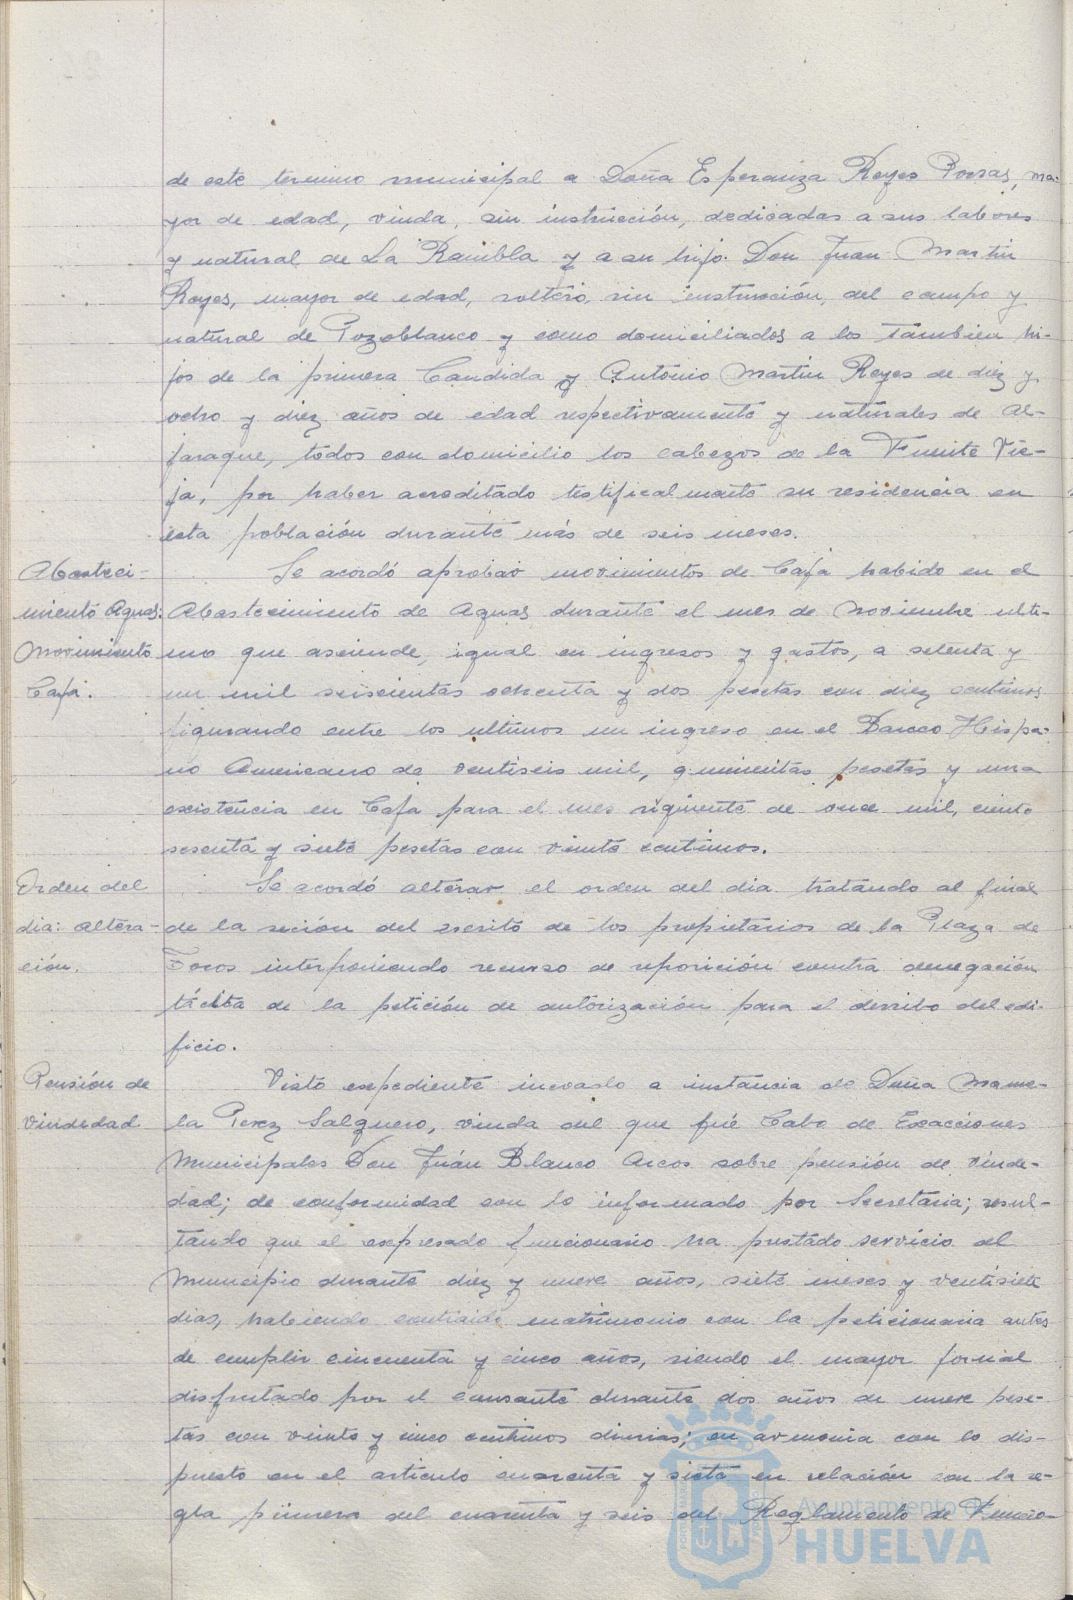 de este termino municipal a Doña Esperanza Reyes Porras, ma-
yor de edad, viuda, sin instrucción, dedicadas a sus labores
y natural de La Rambla y a su hijo Don Juan Martin
Reyes, mayor de edad, soltero, sin instrucción, del campo y
natural de Pozoblanco y como domiciliados a los tambien hi-
jos de la primera Candida y António Martin Reyes de diez y
ocho y diez años de edad respectivamente y naturales de Al-
jaraque, todos con domicilio los cabezos de la Fuente Vie-
ja, por haber acreditado testificalmente su residencia en
esta población durante más de seis meses.
Abasteci-
miento Aguas:
Movimiento
Caja.
Se acordó aprobar movimientos de Caja habido en el
Abastecimiento de Aguas durante el mes de Noviembre ulti-
mo que asciende, igual en ingresos y gastos, a setenta y
un mil seiscientas ochenta y dos pesetas con diez centimos
figurando entre los ultimos un ingreso en el Banco Hispa-
no Americano de ventiseis mil, quinientas pesetas y una
existencia en Caja para el mes siguiente de once mil, ciento
sesenta y siete pesetas con veinte centimos.
Orden del
dia: altera-
ción.
Se acordó alterar el orden del dia tratando al final
de la seción del escrito de los propietarios de la Plaza de
Toros interponiendo recurso de reposición contra denegación
tácita de la petición de autorización para el derribo del edi-
ficio.
Pensión de
viudedad
Visto expediente incoado a instancia de Doña Manue-
la Perez Salguero, viuda del que fué Cabo de Exacciones
Municipales Don Juán Blanco Arcos sobre pensión de viude-
dad; de conformidad con lo informado por Secretaria; resul-
tando que el expresado funcionario ha prestado servicio al
Municipio durante diez y nueve años, siete meses y ventisiete
dias, habiendo contraido matrimonio con la peticionaria antes
de cumplir cincuenta y cinco años, siendo el mayor jornal
disfrutado por el causante durante dos años de nueve pese-
tas con veinte y cinco centimos diarias; en armonia con lo dis-
puesto en el articulo cuarenta y siete en relación con la re-
gla primera del cuarenta y seis del Reglamento de Funcio-
Ayuntamiento de
HUELVA